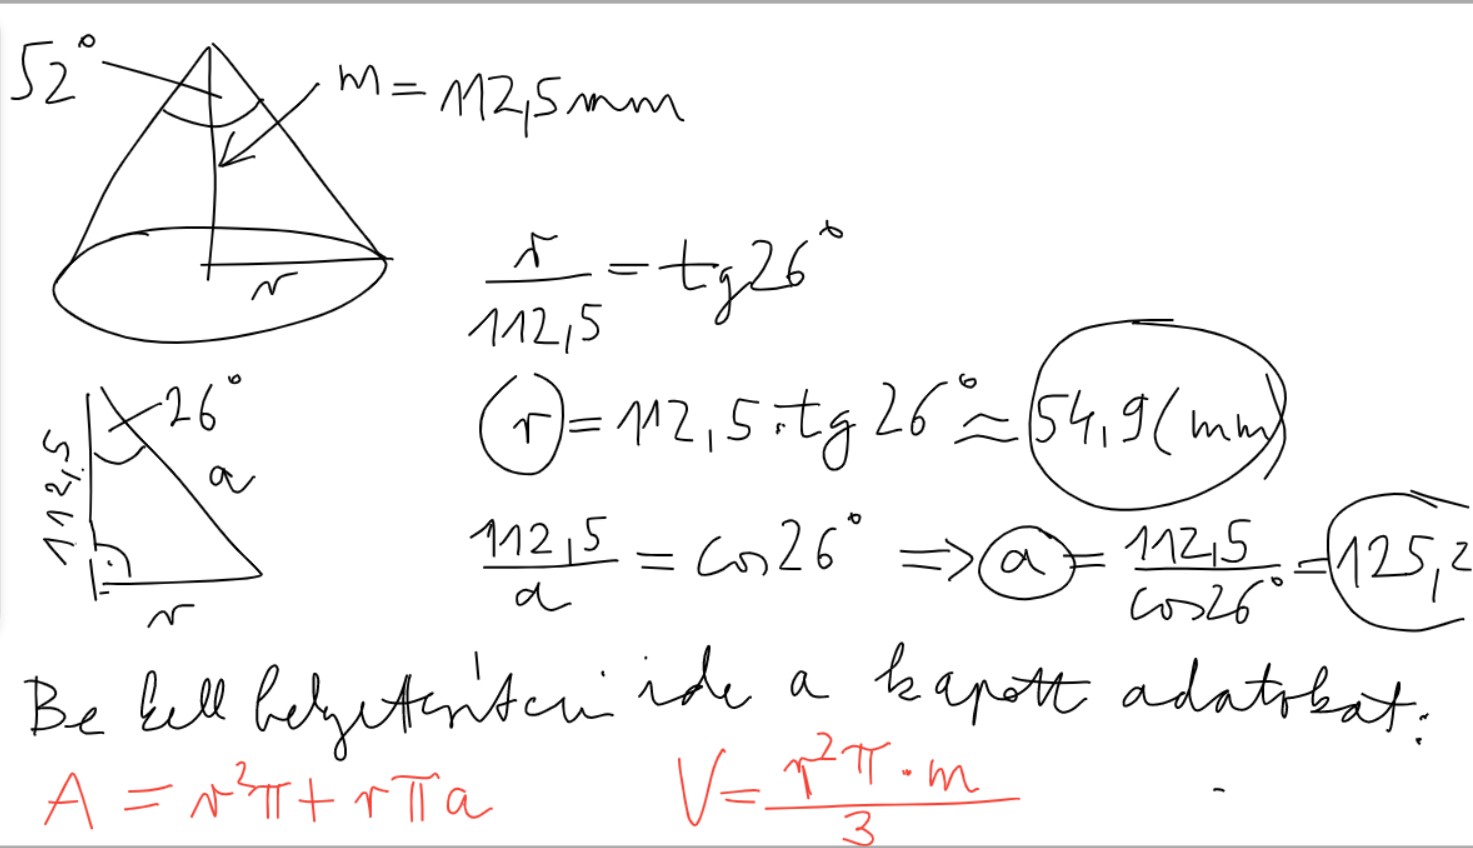 52° m = 112,5 mm
r
r/112,5 = tg 26°
26°
112,5
a
r
r = 112,5 · tg 26° ≈ 54,9 (mm)
112,5/a = cos 26° ⇒ a = 112,5/cos 26° = 125,2
Be kell helyettesíteni ide a kapott adatokat:
A = r²π + rπa V = r²π · m/3